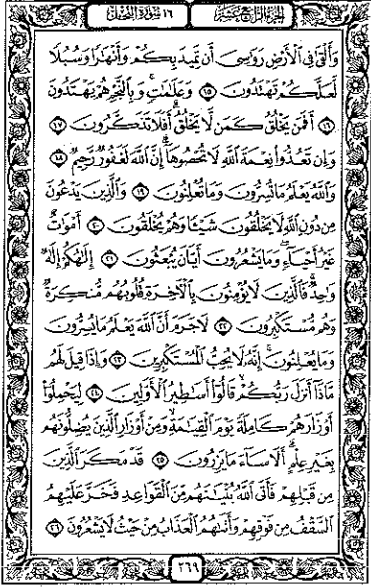 الجزء الرابع عشر
١٦ سورة النحل
وَأَلْقَىٰ فِي الْأَرْضِ رَوَاسِيَ أَن تَمِيدَ بِكُمْ وَأَنْهَارًا وَسُبُلًا
لَّعَلَّكُمْ تَهْتَدُونَ ١٥ وَعَلَامَاتٍ وَبِالنَّجْمِ هُمْ يَهْتَدُونَ
١٦ أَفَمَن يَخْلُقُ كَمَن لَّا يَخْلُقُ أَفَلَا تَذَكَّرُونَ ١٧
وَإِن تَعُدُّوا نِعْمَةَ اللَّهِ لَا تُحْصُوهَا إِنَّ اللَّهَ لَغَفُورٌ رَّحِيمٌ ١٨
وَاللَّهُ يَعْلَمُ مَا تُسِرُّونَ وَمَا تُعْلِنُونَ ١٩ وَالَّذِينَ يَدْعُونَ
مِن دُونِ اللَّهِ لَا يَخْلُقُونَ شَيْئًا وَهُمْ يُخْلَقُونَ ٢٠ أَمْوَاتٌ
غَيْرُ أَحْيَاءٍ وَمَا يَشْعُرُونَ أَيَّانَ يُبْعَثُونَ ٢١ إِلَٰهُكُمْ إِلَٰهٌ
وَاحِدٌ فَالَّذِينَ لَا يُؤْمِنُونَ بِالْآخِرَةِ قُلُوبُهُم مُّنكِرَةٌ
وَهُم مُّسْتَكْبِرُونَ ٢٢ لَا جَرَمَ أَنَّ اللَّهَ يَعْلَمُ مَا يُسِرُّونَ
وَمَا يُعْلِنُونَ إِنَّهُ لَا يُحِبُّ الْمُسْتَكْبِرِينَ ٢٣ وَإِذَا قِيلَ لَهُم
مَّاذَا أَنزَلَ رَبُّكُمْ قَالُوا أَسَاطِيرُ الْأَوَّلِينَ ٢٤ لِيَحْمِلُوا
أَوْزَارَهُمْ كَامِلَةً يَوْمَ الْقِيَامَةِ وَمِنْ أَوْزَارِ الَّذِينَ يُضِلُّونَهُم
بِغَيْرِ عِلْمٍ أَلَا سَاءَ مَا يَزِرُونَ ٢٥ قَدْ مَكَرَ الَّذِينَ
مِن قَبْلِهِمْ فَأَتَى اللَّهُ بُنْيَانَهُم مِّنَ الْقَوَاعِدِ فَخَرَّ عَلَيْهِمُ
السَّقْفُ مِن فَوْقِهِمْ وَأَتَاهُمُ الْعَذَابُ مِنْ حَيْثُ لَا يَشْعُرُونَ ٢٦
٢٦٩